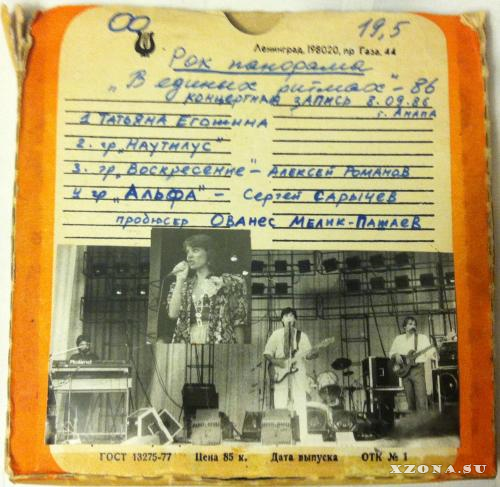 19,5
Ленинград, 198020, пр. Газа, 44
Рок панорама
„В единых ритмах"-86
концертная запись 8.09.86
г. Анапа
1. Татьяна Егошина
2. гр. „Наутилус"
3. гр. „Воскресение" - Алексей Романов
4 гр „Альфа" - Сергей Сарычев
продюсер Ованес Мелик-Пашаев
Roland
ГОСТ 13275-77 Цена 85 к. Дата выпуска ОТК № 1
XZONA.SU